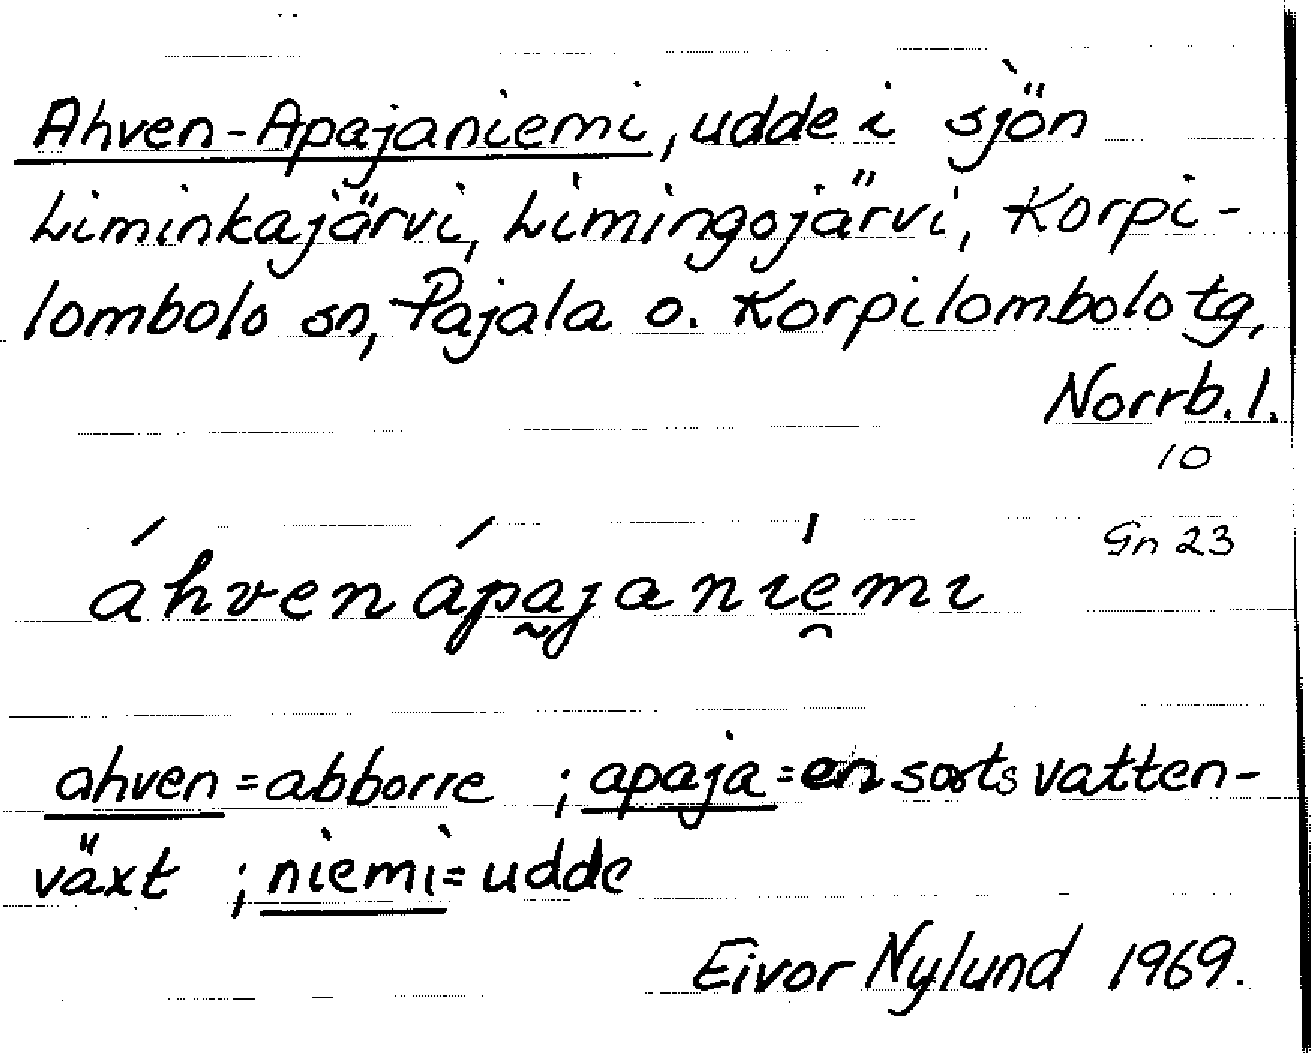 Ahven-Apajaniemi, udde i sjön
Liminkajärvi, Limingojärvi, Korpi-
lombolo sn, Pajala o. Korpilombolo tg,
Norrb. l.
10
Gn 23
áhvenápa̰januȩmı
ahven = abborre ; apaja = en sorts vatten-
växt ; niemi = udde
Eivor Nylund 1969.